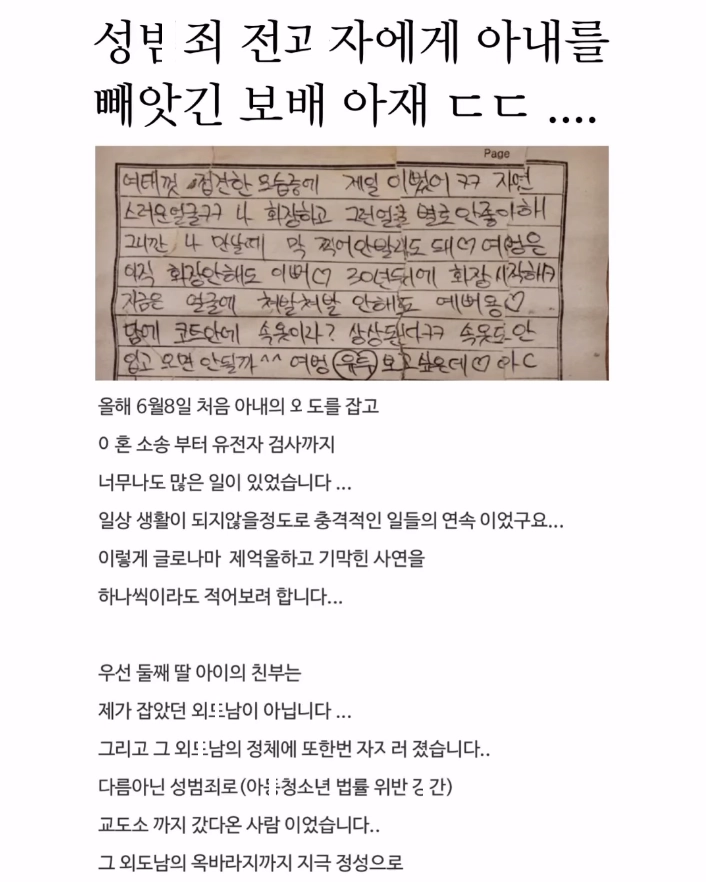 성범죄 전과자에게 아내를
빼앗긴 보배 아재 ㄷㄷ ....
Page
여태껏 접견한 모습중에 제일 이뻤어 ㅋㅋ 자연
스러운얼굴ㅋㅋ 나 화장하고 그런얼굴 별로 안좋아해
그니깐 나 만날때 막 찍어안발라도 돼♡ 여벙은
아직 화장안해도 이뻐♡ 30년뒤에 화장시작해ㅋ
지금은 얼굴에 쳐발쳐발 안해도 예뻐용♡
담에 코트안에 속옷이라? 상상된다ㅋㅋ 속옷도 안
입고 오면 안될까^^ 여벙 유투 보고싶은데♡
올해 6월8일 처음 아내의 외도를 잡고
이혼 소송 부터 유전자 검사까지
너무나도 많은 일이 있었습니다 ...
일상 생활이 되지않을정도로 충격적인 일들의 연속 이었구요...
이렇게 글로나마 제억울하고 기막힌 사연을
하나씩이라도 적어보려 합니다...
우선 둘째 딸 아이의 친부는
제가 잡았던 외도남이 아닙니다 ...
그리고 그 외도남의 정체에 또한번 자지러 졌습니다..
다름아닌 성범죄로(아동청소년 법률 위반 강간)
교도소 까지 갔다온 사람 이었습니다..
그 외도남의 옥바라지까지 지극 정성으로